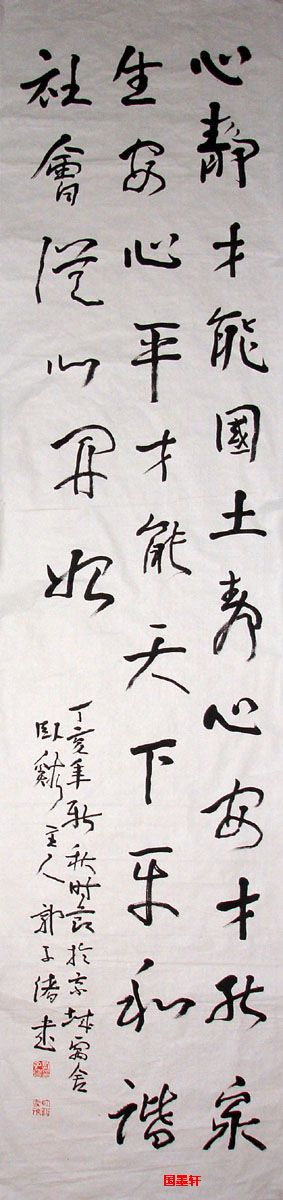 心靜才能國土靜心安才能眾
生安心平才能天下平和諧
社會從心開始
丁亥年新秋時節於京城寓舍
臥谿主人郭子書
国墨轩